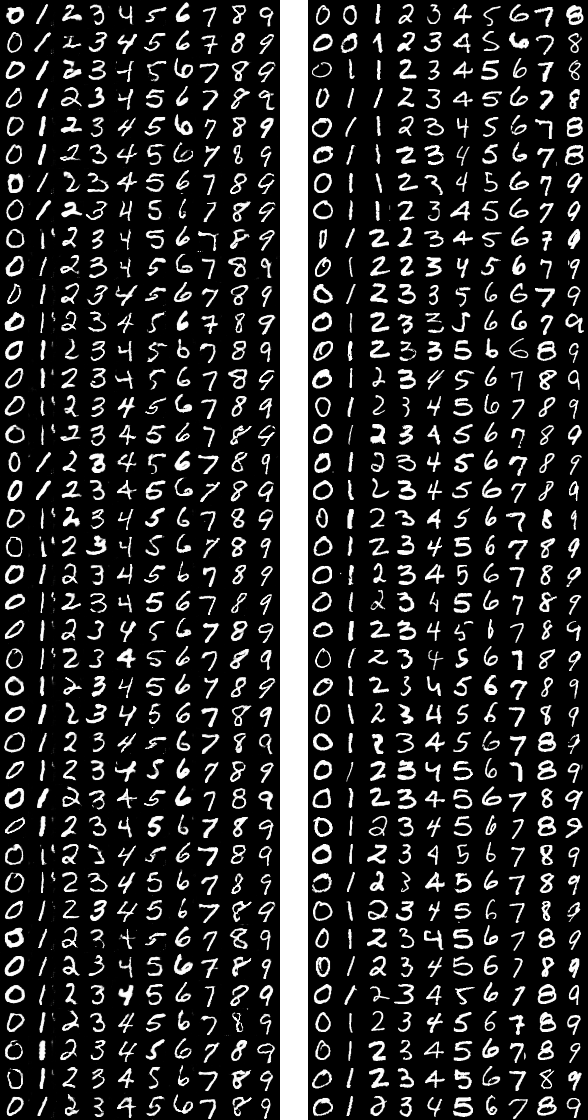 0 1 2 3 4 5 6 7 8 9
0 1 2 3 4 5 6 7 8 9
0 1 2 3 4 5 6 7 8 9
0 1 2 3 4 5 6 7 8 9
0 1 2 3 4 5 6 7 8 9
0 1 2 3 4 5 6 7 8 9
0 1 2 3 4 5 6 7 8 9
0 1 2 3 4 5 6 7 8 9
0 1 2 3 4 5 6 7 8 9
0 1 2 3 4 5 6 7 8 9
0 1 2 3 4 5 6 7 8 9
0 1 2 3 4 5 6 7 8 9
0 1 2 3 4 5 6 7 8 9
0 1 2 3 4 5 6 7 8 9
0 1 2 3 4 5 6 7 8 9
0 1 2 3 4 5 6 7 8 9
0 1 2 3 4 5 6 7 8 9
0 1 2 3 4 5 6 7 8 9
0 1 2 3 4 5 6 7 8 9
0 1 2 3 4 5 6 7 8 9
0 1 2 3 4 5 6 7 8 9
0 1 2 3 4 5 6 7 8 9
0 1 2 3 4 5 6 7 8 9
0 1 2 3 4 5 6 7 8 9
0 1 2 3 4 5 6 7 8 9
0 1 2 3 4 5 6 7 8 9
0 1 2 3 4 5 6 7 8 9
0 1 2 3 4 5 6 7 8 9
0 1 2 3 4 5 6 7 8 9
0 1 2 3 4 5 6 7 8 9
0 1 2 3 4 5 6 7 8 9
0 1 2 3 4 5 6 7 8 9
0 1 2 3 4 5 6 7 8 9
0 1 2 3 4 5 6 7 8 9
0 1 2 3 4 5 6 7 8 9
0 1 2 3 4 5 6 7 8 9
0 1 2 3 4 5 6 7 8 9
0 1 2 3 4 5 6 7 8 9
0 1 2 3 4 5 6 7 8 9
0 1 2 3 4 5 6 7 8 9
0 0 1 2 3 4 5 6 7 8
0 0 1 2 3 4 5 6 7 8
0 1 1 2 3 4 5 6 7 8
0 1 1 2 3 4 5 6 7 8
0 1 1 2 3 4 5 6 7 8
0 1 1 2 3 4 5 6 7 8
0 1 1 2 3 4 5 6 7 9
0 1 1 2 3 4 5 6 7 9
0 1 2 2 3 4 5 6 7 9
0 1 2 2 3 4 5 6 7 9
0 1 2 3 3 5 6 6 7 9
0 1 2 3 3 5 6 6 7 9
0 1 2 3 3 5 6 6 8 9
0 1 2 3 4 5 6 7 8 9
0 1 2 3 4 5 6 7 8 9
0 1 2 3 4 5 6 7 8 9
0 1 2 3 4 5 6 7 8 9
0 1 2 3 4 5 6 7 8 9
0 1 2 3 4 5 6 7 8 9
0 1 2 3 4 5 6 7 8 9
0 1 2 3 4 5 6 7 8 9
0 1 2 3 4 5 6 7 8 9
0 1 2 3 4 5 6 7 8 9
0 1 2 3 4 5 6 7 8 9
0 1 2 3 4 5 6 7 8 9
0 1 2 3 4 5 6 7 8 9
0 1 2 3 4 5 6 7 8 9
0 1 2 3 4 5 6 7 8 9
0 1 2 3 4 5 6 7 8 9
0 1 2 3 4 5 6 7 8 9
0 1 2 3 4 5 6 7 8 9
0 1 2 3 4 5 6 7 8 9
0 1 2 3 4 5 6 7 8 9
0 1 2 3 4 5 6 7 8 9
0 1 2 3 4 5 6 7 8 9
0 1 2 3 4 5 6 7 8 9
0 1 2 3 4 5 6 7 8 9
0 1 2 3 4 5 6 7 8 9
0 1 2 3 4 5 6 7 8 9
0 1 2 3 4 5 6 7 8 9